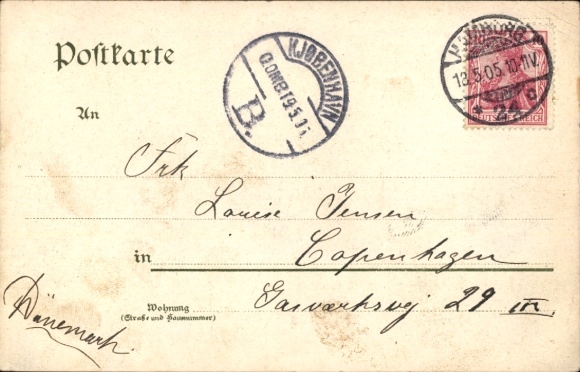 Postkarte
KJØBENHAVN
OMB 19.5.05
B.
HAMBURG
18.5.05.10-11V.
* 21 c
DEUTSCHES REICH
An
Frk
Louise Jensen
in Copenhagen
Wohnung
(Straße und Hausnummer)
Gasværksvej 29 III.
Dänemark.